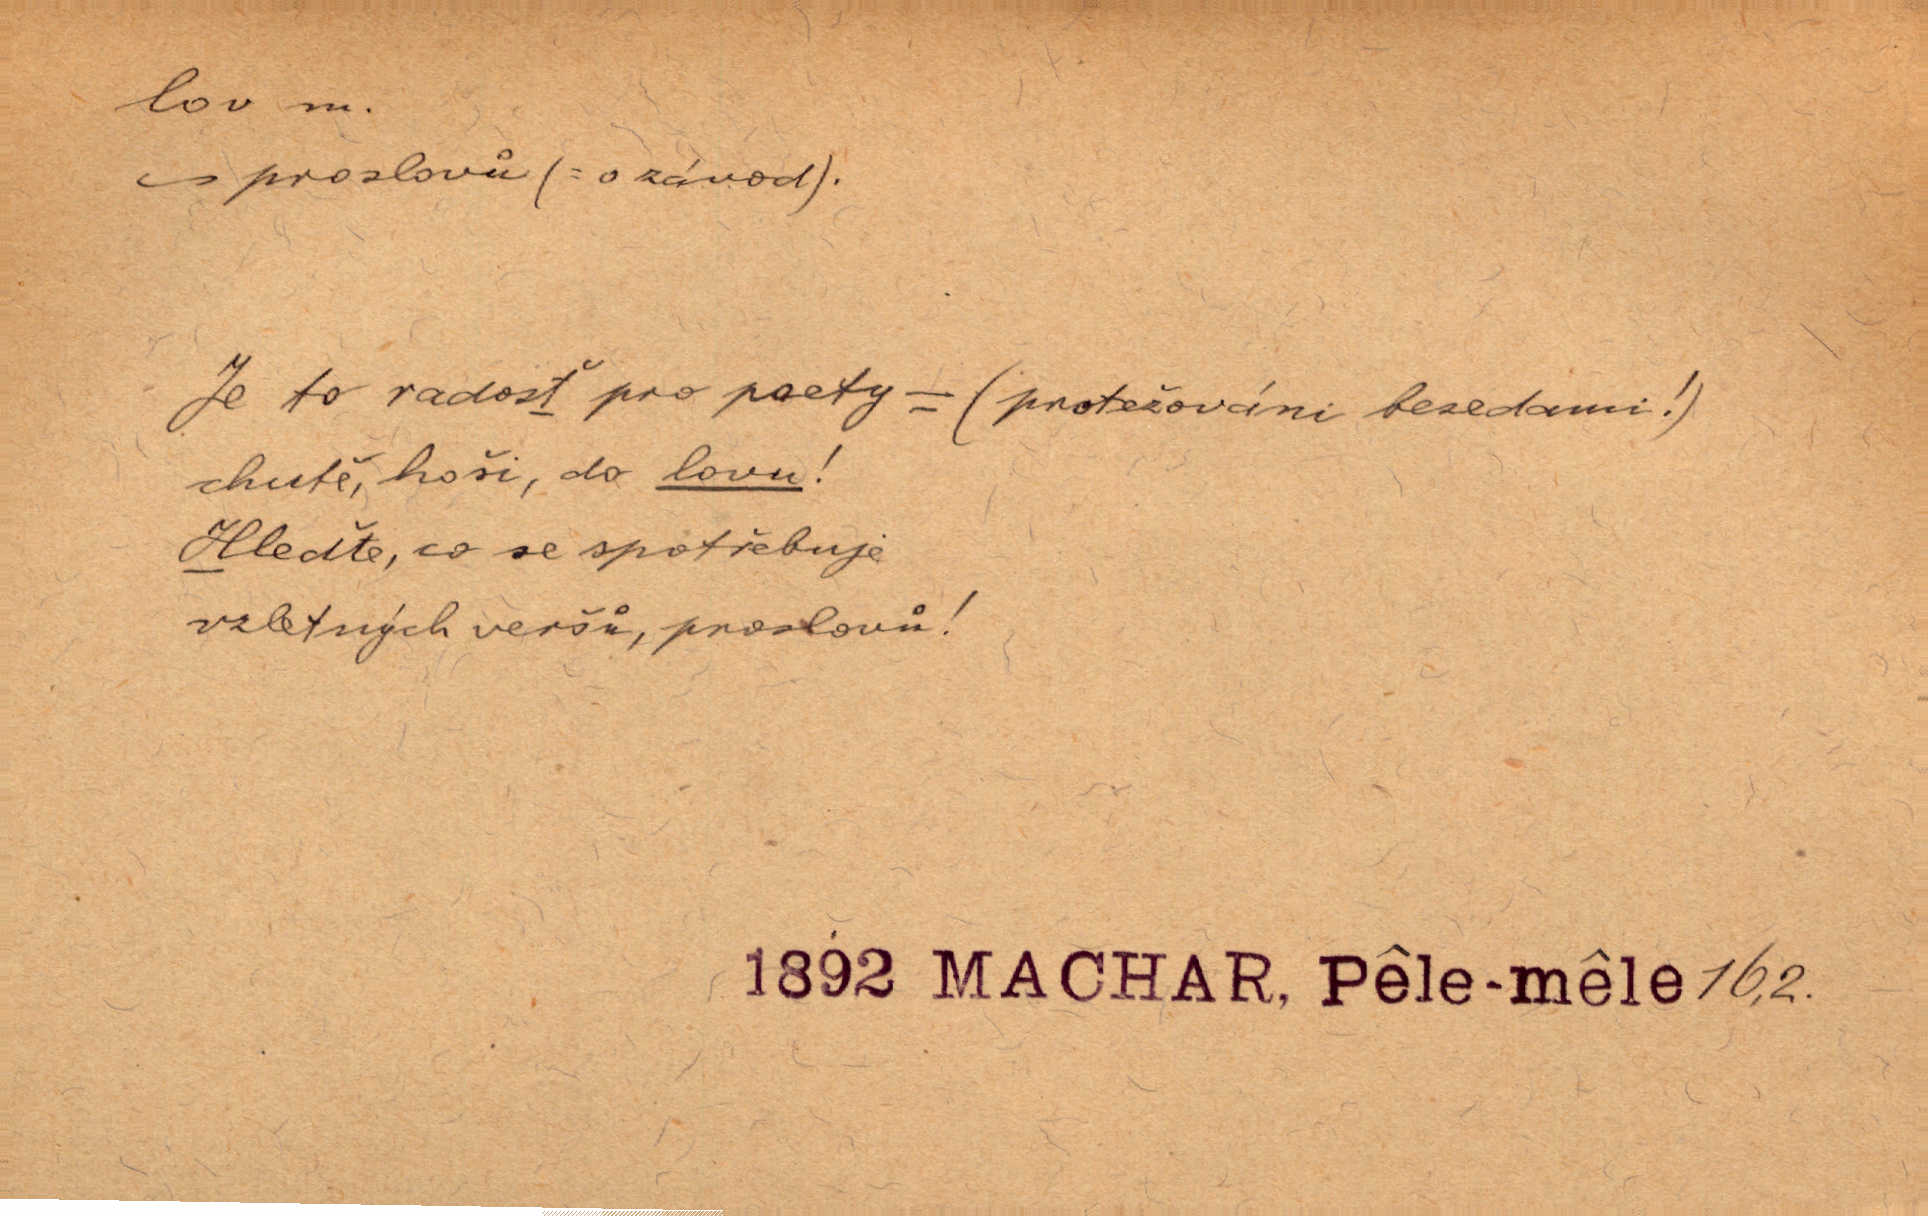 lov m.
~ proslovů (= o závod).
Je to radosť pro poety – (protežováni besedami!)
chutě, hoši, do lovu!
Hleďte, co se spotřebuje
vzletných veršů, proslovů!
1892 MACHAR, Pêle-mêle 16,2.